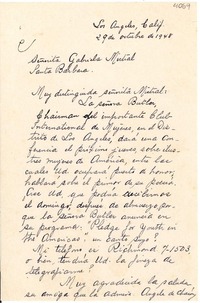 4064
Los Angeles, Calif.
29 de octubre de 1948
Señorita Gabriela Mistral
Santa Bárbara
Muy distinguida señorita Mistral:
La señora Butler,
Chairman del importante Club
International de Mujeres, en el Dis-
trito de Los Angeles, dará una con-
ferencia el próximo jueves, sobre ilus-
tres mujeres de América, entre las
cuales Ud. ocupará puesto de honor;
hablará sobre
Ud. que podría
el domingo, después de almuerzo por-
que la señora Butler anuncia en
su programa: "Pledge for Youth in
the Americas, in
Mi teléfono es Richmond 7-1503,
o bien, tendría Ud. la fineza de
telegrafiarme?
Muy agradecida la saluda
su amiga que la admira. Angela de